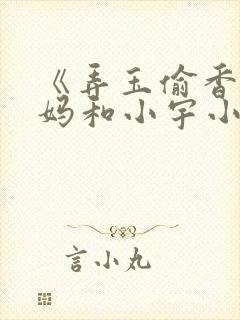 《弄玉偷香
妈和小宇小
言小丸